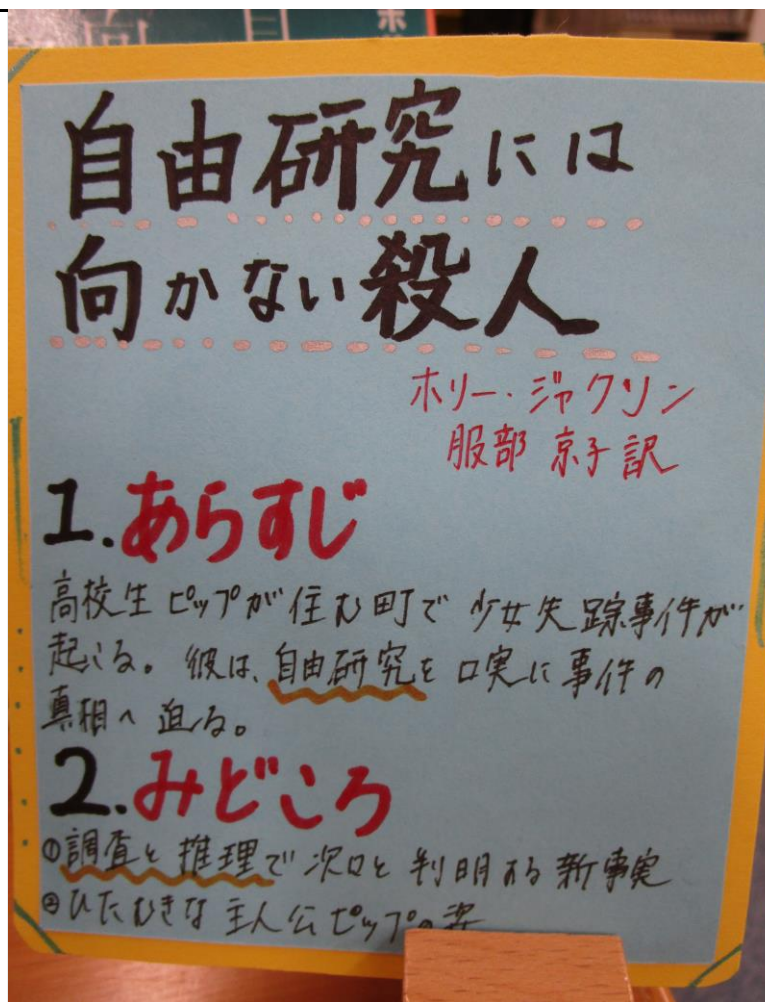 自由研究には
向かない殺人
ホリー・ジャクソン
服部 京子 訳
1.あらすじ
高校生ピップが住む町で 少女失踪事件が
起こる。彼は、自由研究を口実に事件の
真相へ迫る。
2.みどころ
①調査と推理で次々と判明する新事実
②ひたむきな主人公ピップの姿